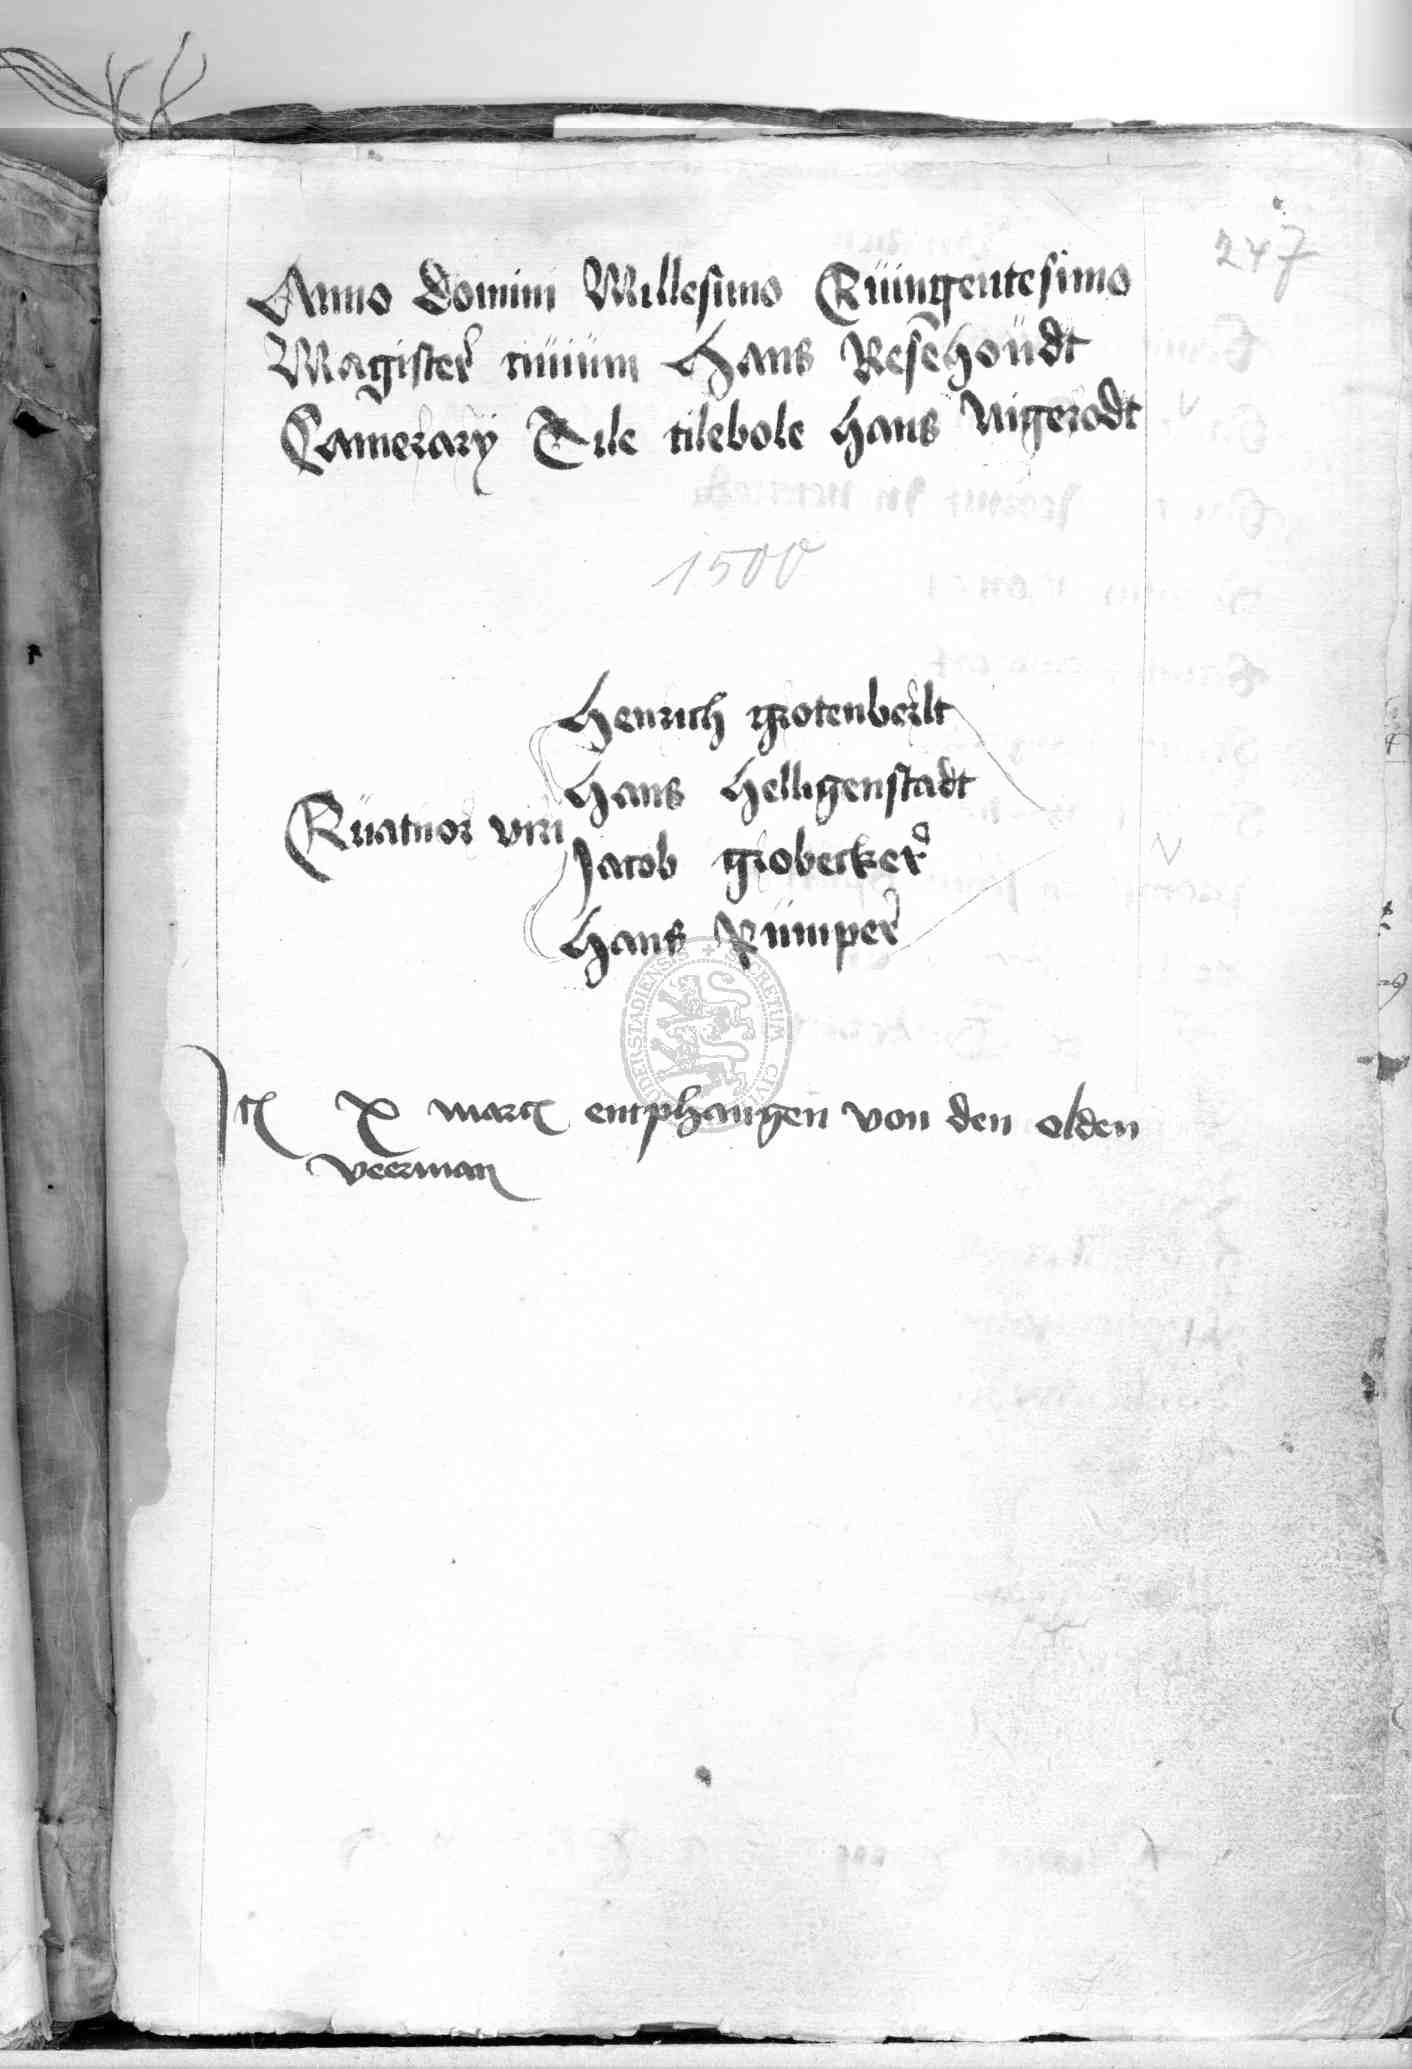 247
Anno Domini Millesimo Quingentesimo
Magister civium Hans Resehoudt
Camerary Tile tilebole Hans Nigerodt
1500
Quatuor viri
Henrich grotenberlt
Hans Helligenstadt
Jacob grobecker
Hans Rümper
SECRETUM CIVI
UDERSTADIENSIS
It X marc entphangen von den olden
veerman